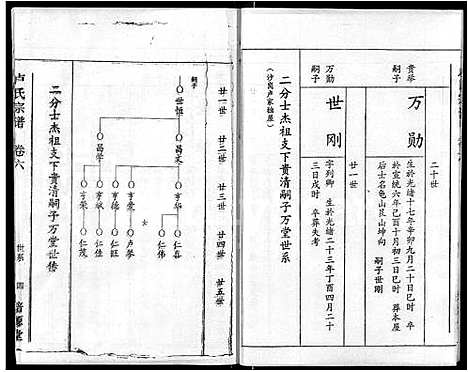 二十世
贵荣嗣子
万勋
生於光绪十七年辛卯九月二十日巳时
於宣统六年己酉十月初三日巳时 葬本屋
后土名龟山艮山坤向 嗣子世刚
廿一世
万勋嗣子
世刚
字列卿 生於光绪二十三年丁酉四月二十
三日戌时 卒葬失考
二分士杰祖支下贵清嗣子万堂世系
(沙岗卢家独屋)
廿一世
廿二世
廿三世
廿四世
廿五世
嗣子
世恒
昌文
昌学
亨华
亨荣
亨德
亨斌
亨荣
仁喜
仁伟
卢琴
仁旺
仁佳
仁茂
二分士杰祖支下贵清嗣子万堂世传
卢氏宗谱 卷六
世系 四